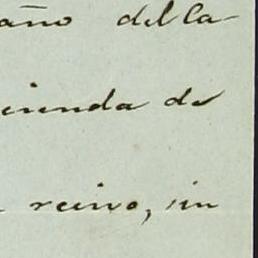 año della
cienda de
reino, sin